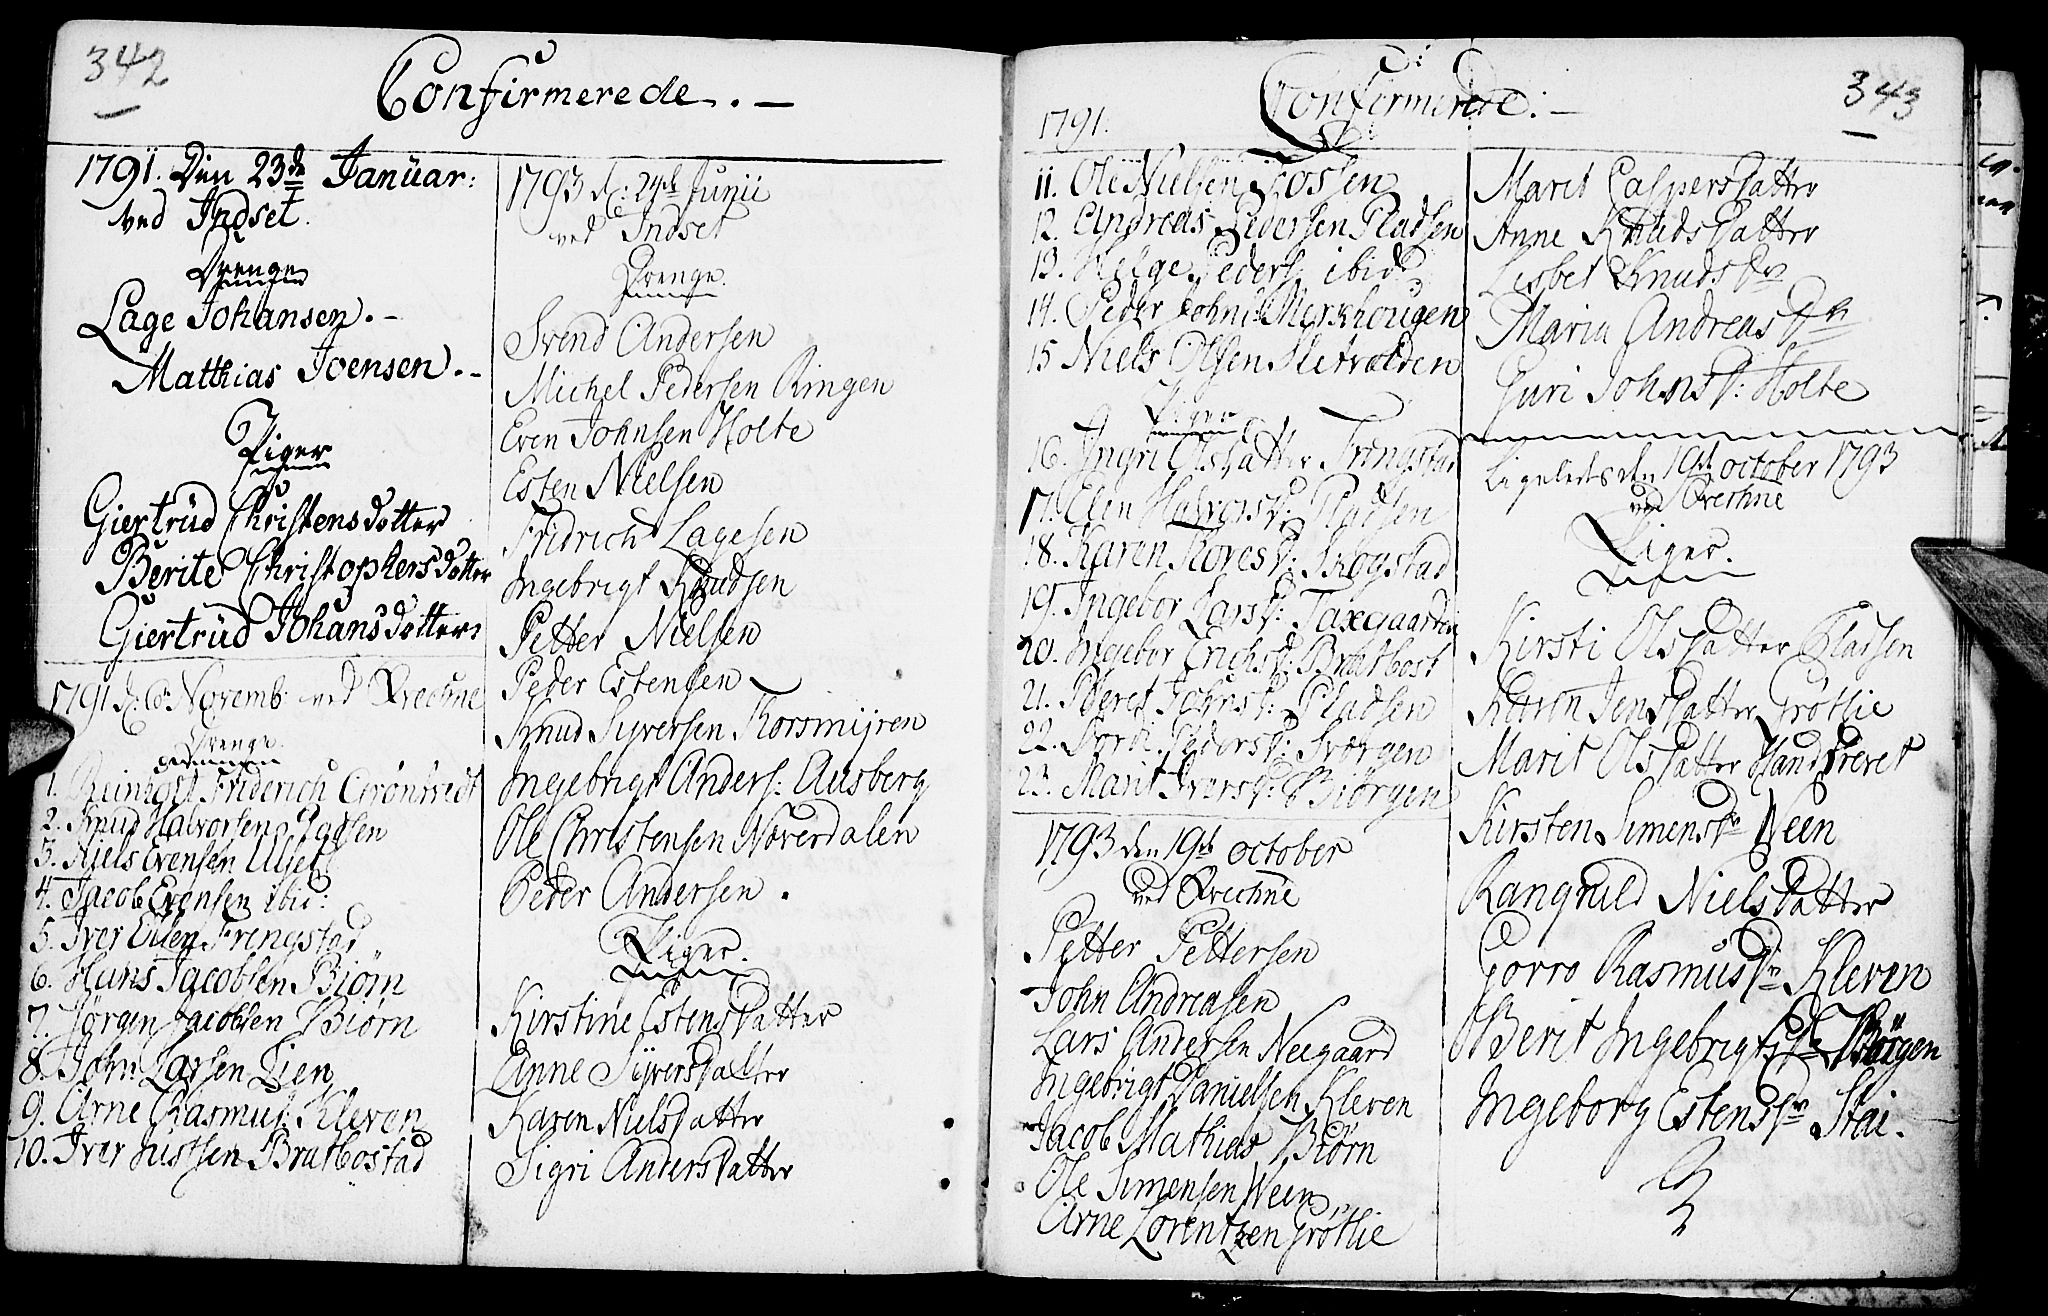 342
Confirmerede. -
1791. Den 23de Januar:
ved Indset.
Drenge
Lage Johansen. -
Matthias Joensen. -
Piger
Giertrüd Christensdotter
Berite Christophersdotter
Giertrüd Johansdotter
1791 d: 6 Novemb: ved Qvechne
Drenge
1. Reinholt Friderich Grönhvidt
2. Knud Halvorsen Pladsen
3. Niels Evensen Ulset
4. Jacob Evensen ibid:
5. Iver Frengstad
6. Hans Jacobsen Biørn
7. Jørgen Jacobsen Biørn
8. John Larsen Lien
9. Arne Rasmus: Kleven
10. Iver Justsen Bratbostad
1793 d: 24de Junii
ved Indset
Drenge.
Svend Andersen
Michel Pedersen Ringen
Even Johnsen Holte
Esten Nielsen
Fridrich Lagesen
Ingebrigt Knudsen
Petter Nielsen
Peder Estensen
Knud Syversen Thorsmyren
Ingebrigt Anders: Ausberg
Ole Christensen Næverdalen
Peder Andersen.
Piger.
Kirstine Estensdatter
Anne Syversdatter
Karen Nielsdatter
Sigri Andersdatter
343
Confirmerede: -
1791.
11. Ole Nielsen Fossen
12. Andreas Pedersen Pladsen
13. Helge Peders: ibid
14. Peder Johns: Merkhougen
15 Niels Olsen Sletvolden
Piger
16. Ingri Olsdatter Frengstad
17. Elen Halvorsd: Pladsen
18. Karen Toresd: Skogstad
19. Ingebor Larsd: Taxgaarden
20. Ingebor Erichsd: Bratbost
21. Beret Johnsd: Pladsen
22. Pedersd:
23. Marit Iversd: Biörgen
1793 den 19de october
ved Qvechne
Petter Pettersen
John Andreasen
Lars Andersen Neegaard
Ingebrigt Danielsen Kleven
Jacob Mathias Biørn
Ole Simensen Ween
Arne Lorentzen Grötlie
Marit Caspersdatter
Anne Knudsdatter
Lisbet Knudsdr
Maria Andreasdr
Guri Johnsd: Holte
Ligeledes den 19de october 1793
ved Qvechne
Piger.
Kirsti Olsdatter Pladsen
Karen Jensdatter Grötlie
Marit Olsdatter
Kirsten Simensdr Ween
Rangnild Nielsdatter
Gorro Rasmusdr Kleven
Berit Ingebrigtsdr Börgen
Ingeborg Estensdr Stai.